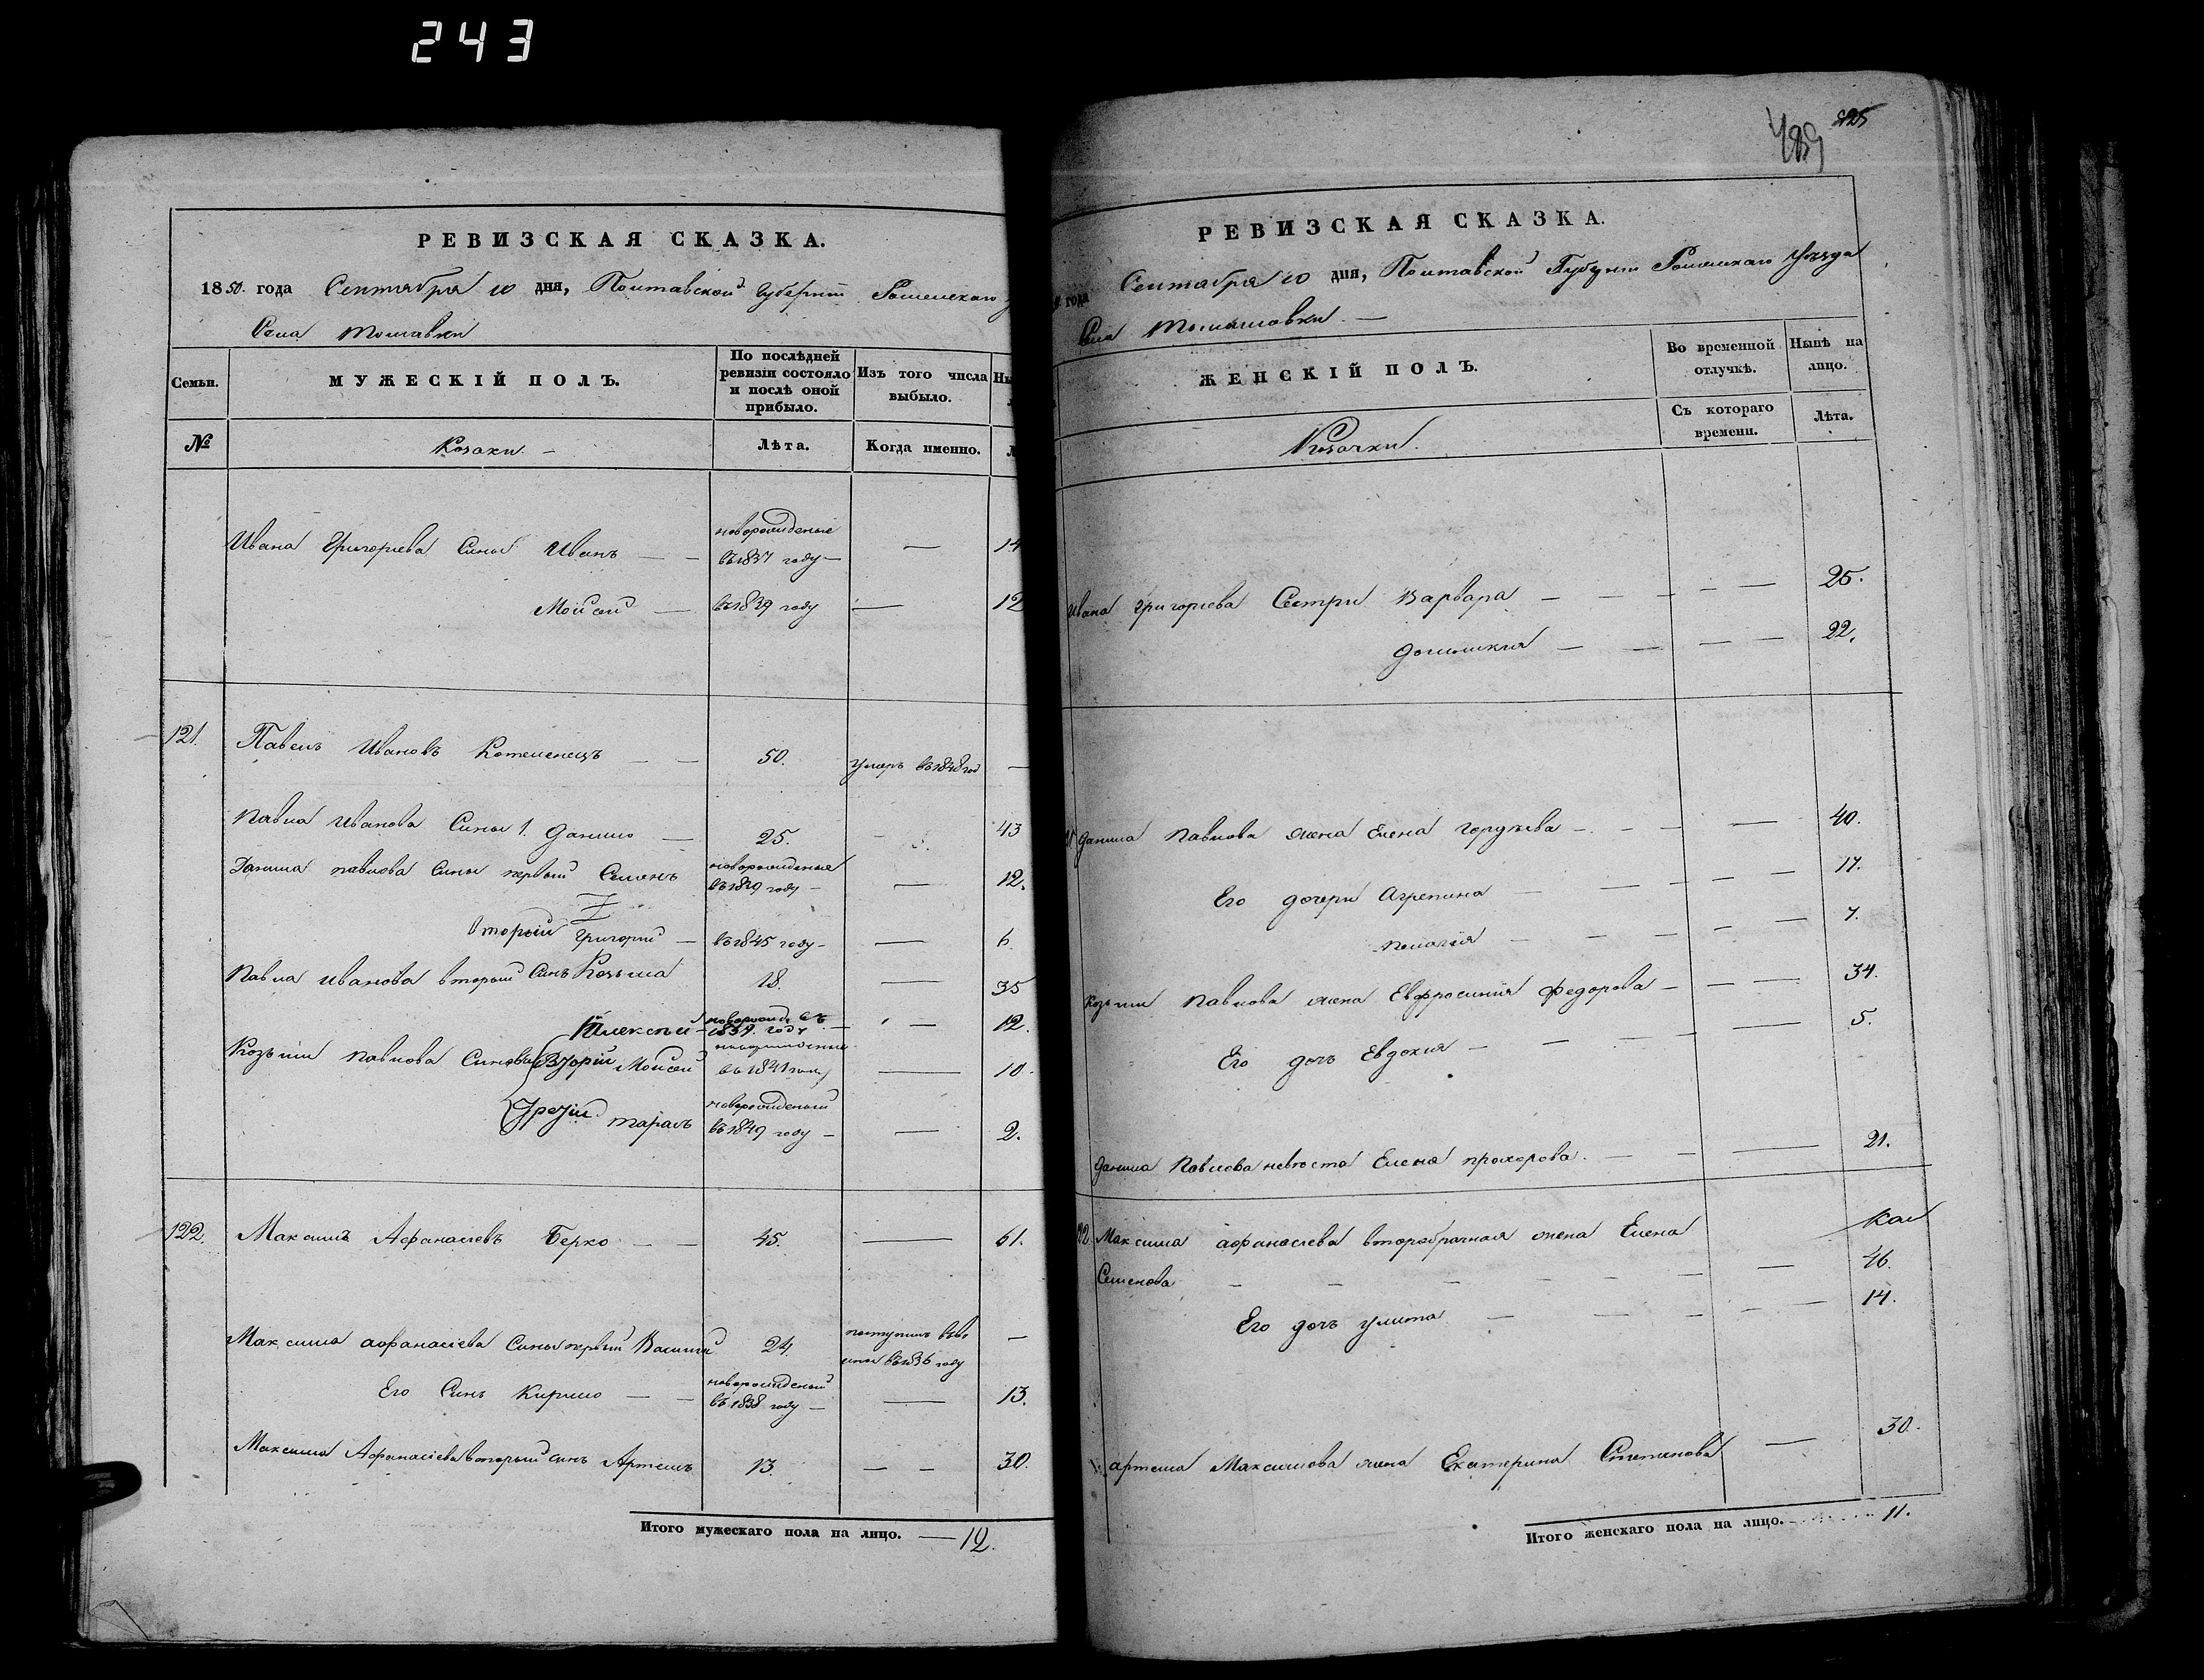 243
РЕВИЗСКАЯ СКАЗКА.
1850. года Сентября 10 дня, Полтавской Губернiи Роменскаго
Села
Семьи.
МУЖЕСКІЙ ПОЛЪ.
По послѣдней ревизіи состояло и послѣ оной прибыло.
Изъ того числа выбыло.
№
Козаки. —
Лѣта.
Когда именно.
Ивана Григорiева Сины Иванъ — — новорожденые въ 1837 году — — 14
Мойсей — въ 1839 году — 12
121. Павелъ Ивановъ — — 50. умеръ въ 1848 год —
Павла Иванова Сины 1. Данило — 25. 43
Данила павлова Сины первый Семенъ новорожденые въ 1839 году — — 12.
Вторый Григорий — въ 1845 году — — 6.
Павла Иванова вторый Синъ Козьма 18. — 35
Алексѣй новорожд. въ 1839. году — — 12.
Козьми павлова Синовья Вторiй Мойсей въ 1841 году — 10.
Третiй тарасъ новорожденый въ 1849 году — — 2.
122. Максимъ Афанасiевъ Берко — — 45. — 61.
Максима афанасiева Сины первый Василий 24. поступилъ въ 1836 году —
Его Синъ Кирило — — новорожденый въ 1838 году — — 13.
Максима Афанасiева вторый синъ Артемъ 13. — — 30.
Итого мужескаго пола на лицо. — 12.
489 825
РЕВИЗСКАЯ СКАЗКА.
года Сентября 10 дня, Полтавской Губернiи Роменскаго Уезда
Села
ЖЕНСКІЙ ПОЛЪ.
Во временной отлучкѣ.
Нынѣ на лицо.
Козачки.
Съ котораго времени.
Лѣта.
Ивана григорiева Сестри Варвара — — — — — 25.
Домникия — — — — 22.
Данила Павлова жена Елена гордѣева — — — — 40.
Его дочери Агрепина — — — — — 17.
пелагия — — — — — 7.
Козьми Павлова жена Евфросиния Федорова — — — 34.
Его дочь Евдокия — — — — 5.
Данила Павлова невѣста Елена прохорова. — — — 21.
Максима афанасiева второбрачная жена Елена
Семенова — — — — — — 46.
Его дочь улита — — — — — 14.
артема Максимова жена Екатерина Степанова — 30.
Итого женскаго пола на лицо. 11.